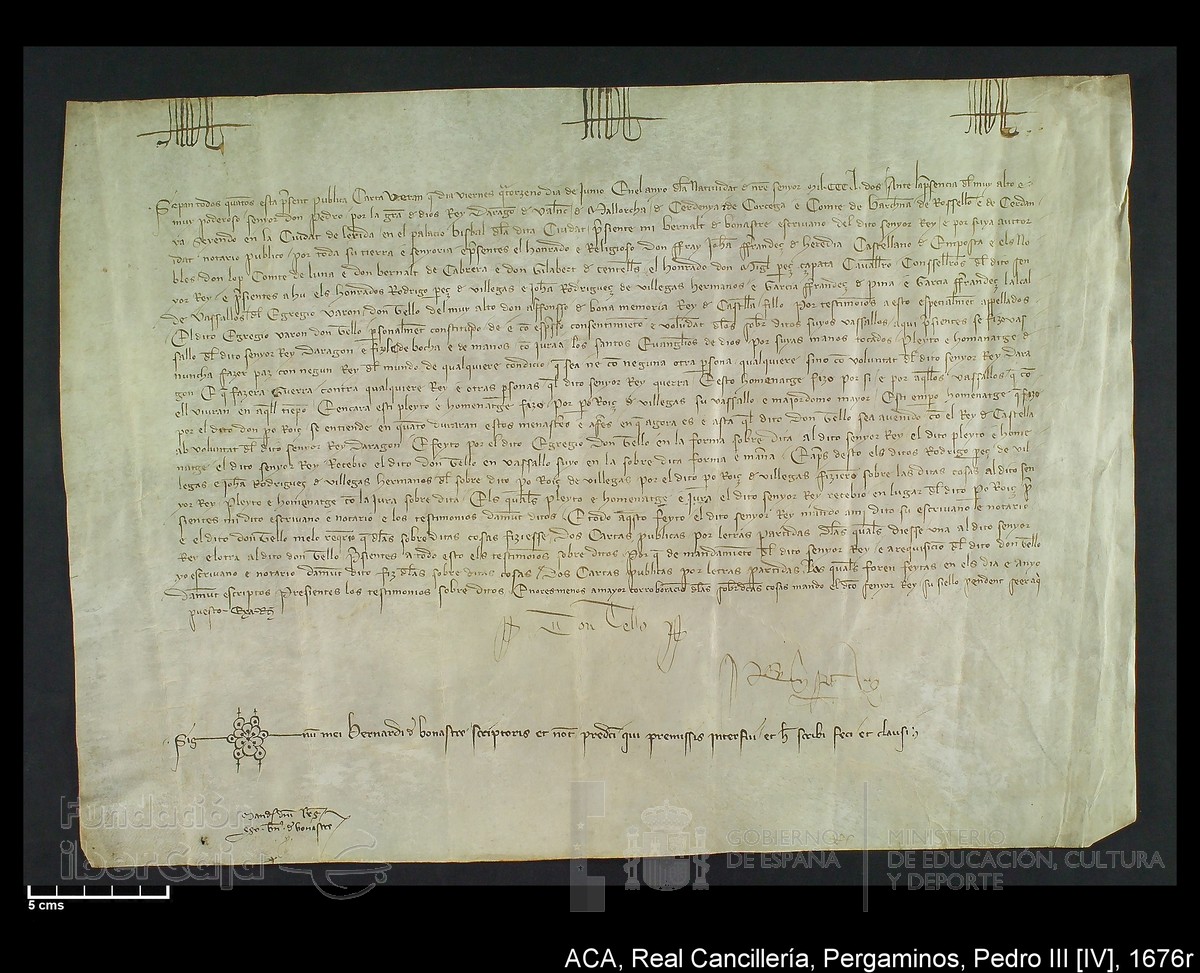 Sepan todos quantos esta present publica Carta veran q dia viernes qtorzeno dia de Junio Enel anyo dla Natiuidat d nre senyor Mil CCC L dos Ante la psencia dl muy alto e
muy poderoso senyor don Pedro por la gra de dios Rey Darago d Valenc de Mallorcha d Cerdenya e de Corcega e Comte de Barchna de Rossello e de Cerdan
ya Seyendo en la Ciudat de lerida en el palacio bisbal dla dita Ciudat psiente mi bernalt d bonastre escriuano del dito senyor Rey e por suya auctor
idat notario publico por toda su tierra e senyoria epsentes el honrado e Religioso don ffray Joha fferrandez d heredia Castellano d Emposta e els No
bles don lop Comte de luna e don bernalt de Cabrera e don Gilabert d Centells e el honrado don Migl perez capata Cauallero Conselleros dl dito sen
yor Rey e psientes ahu els honrados Rodrigo perez d villegas e Joha Rodriguez de villegas hermanos e Garcia fferrandez d pina e Garcia fferrandez
de vassallos dl Egregio varon don Tello del muy alto don alffonso d bona memoria Rey d Castiella fillo Por testimonios a esto especialmet appellados
El dito Egregio varon don Tello psonalmet constituydo de e co espresso consentimieto e voluntat dlos sobr ditos suyos vassallos aqui psientes se fizo vas
sallo dl dito senyor Rey Daragon e fizle de bocha e de manos co jura los santos Euanglios de dios por suyas manos tocados pleyto e homanatge d
nuncha fazer paz con negun Rey dl mundo de qualquiere condicio q sea ne co neguna otra psona qualquiere sino co voluntat dl dito senyor Rey dara
gon E q fazera Guerra contra qualquiere Rey e otras psonas ql dito senyor Rey querra E esto homenatge fizo por si e por aqllos vassallos q co
ell viuran en aqll tiepo E encara esti pleyto e homenatge fazo por po Roiz d villegas su vassallo e maiordomo mayor Esti empo homenatge q fizo
por el dito don po Roiz se entiende en quato duraran estos menastros e affes en q agora es e asta ql dito don Tello sea auenido co el Rey d Castiella
ab voluntat dl dito senyor Rey daragon E feyto por el dito Egregio don Tello en la forma sobre dita al dito senyor Rey el dito pleyto e home
natge el dito senyor Rey Recebio el dito don Tello en vassallo suyo en la sobre dita forma e mana E aps desto els ditos Rodrigo perez de vil
legas e Joha Rodriguez d villegas hermanos dl sobre dito po Roiz de villegas por el dito po Roiz d villegas fizieron sobre las ditas cosas al dito sen
yor Rey pleyto e homenatge co la jura sobre dita Els quals pleyto e homenatge e jura el dito senyor Rey recebio en lugar dl dito po Roiz p
sientes mi dito escriuano e notario e los testimonios damut ditos E todo aqsto feyto el dito senyor Rey mando ami dito su escriuano e notario
e el dito don Tello melo reqrio q dlas sobre ditas cosas fiziesse dos Cartas publicas por letras partidas dlas quals diesse una al dito senyor
Rey e lotra al dito don Tello psientes a todo esto els testimonios sobre ditos Por q de mandamieto dl dito senyor Rey e a requisicio dl dito don Tello
yo escriuano e notario damut dito fiz dlas sobre ditas cosas dos Cartas publicas por letras partidas las quals foren feytas en els dia e anyo
damut escriptos Presientes los testimonios sobre ditos E no res menos a mayor corroboracio dlas sobrditas cosas mando el dito senyor Rey su siello pendent seer aq
puesto
Don Tello
Sig num mei Bernardi d bonastre scriptoris et not predci qui premissis interfui et h scribi feci et clausi
Mand dni Reg
ego Bn d bonastre
Fundación
iberCaja
GOBIERNO
DE ESPAÑA
MINISTERIO
DE EDUCACIÓN, CULTURA
Y DEPORTE
5 cms
ACA, Real Cancillería, Pergaminos, Pedro III [IV], 1676r